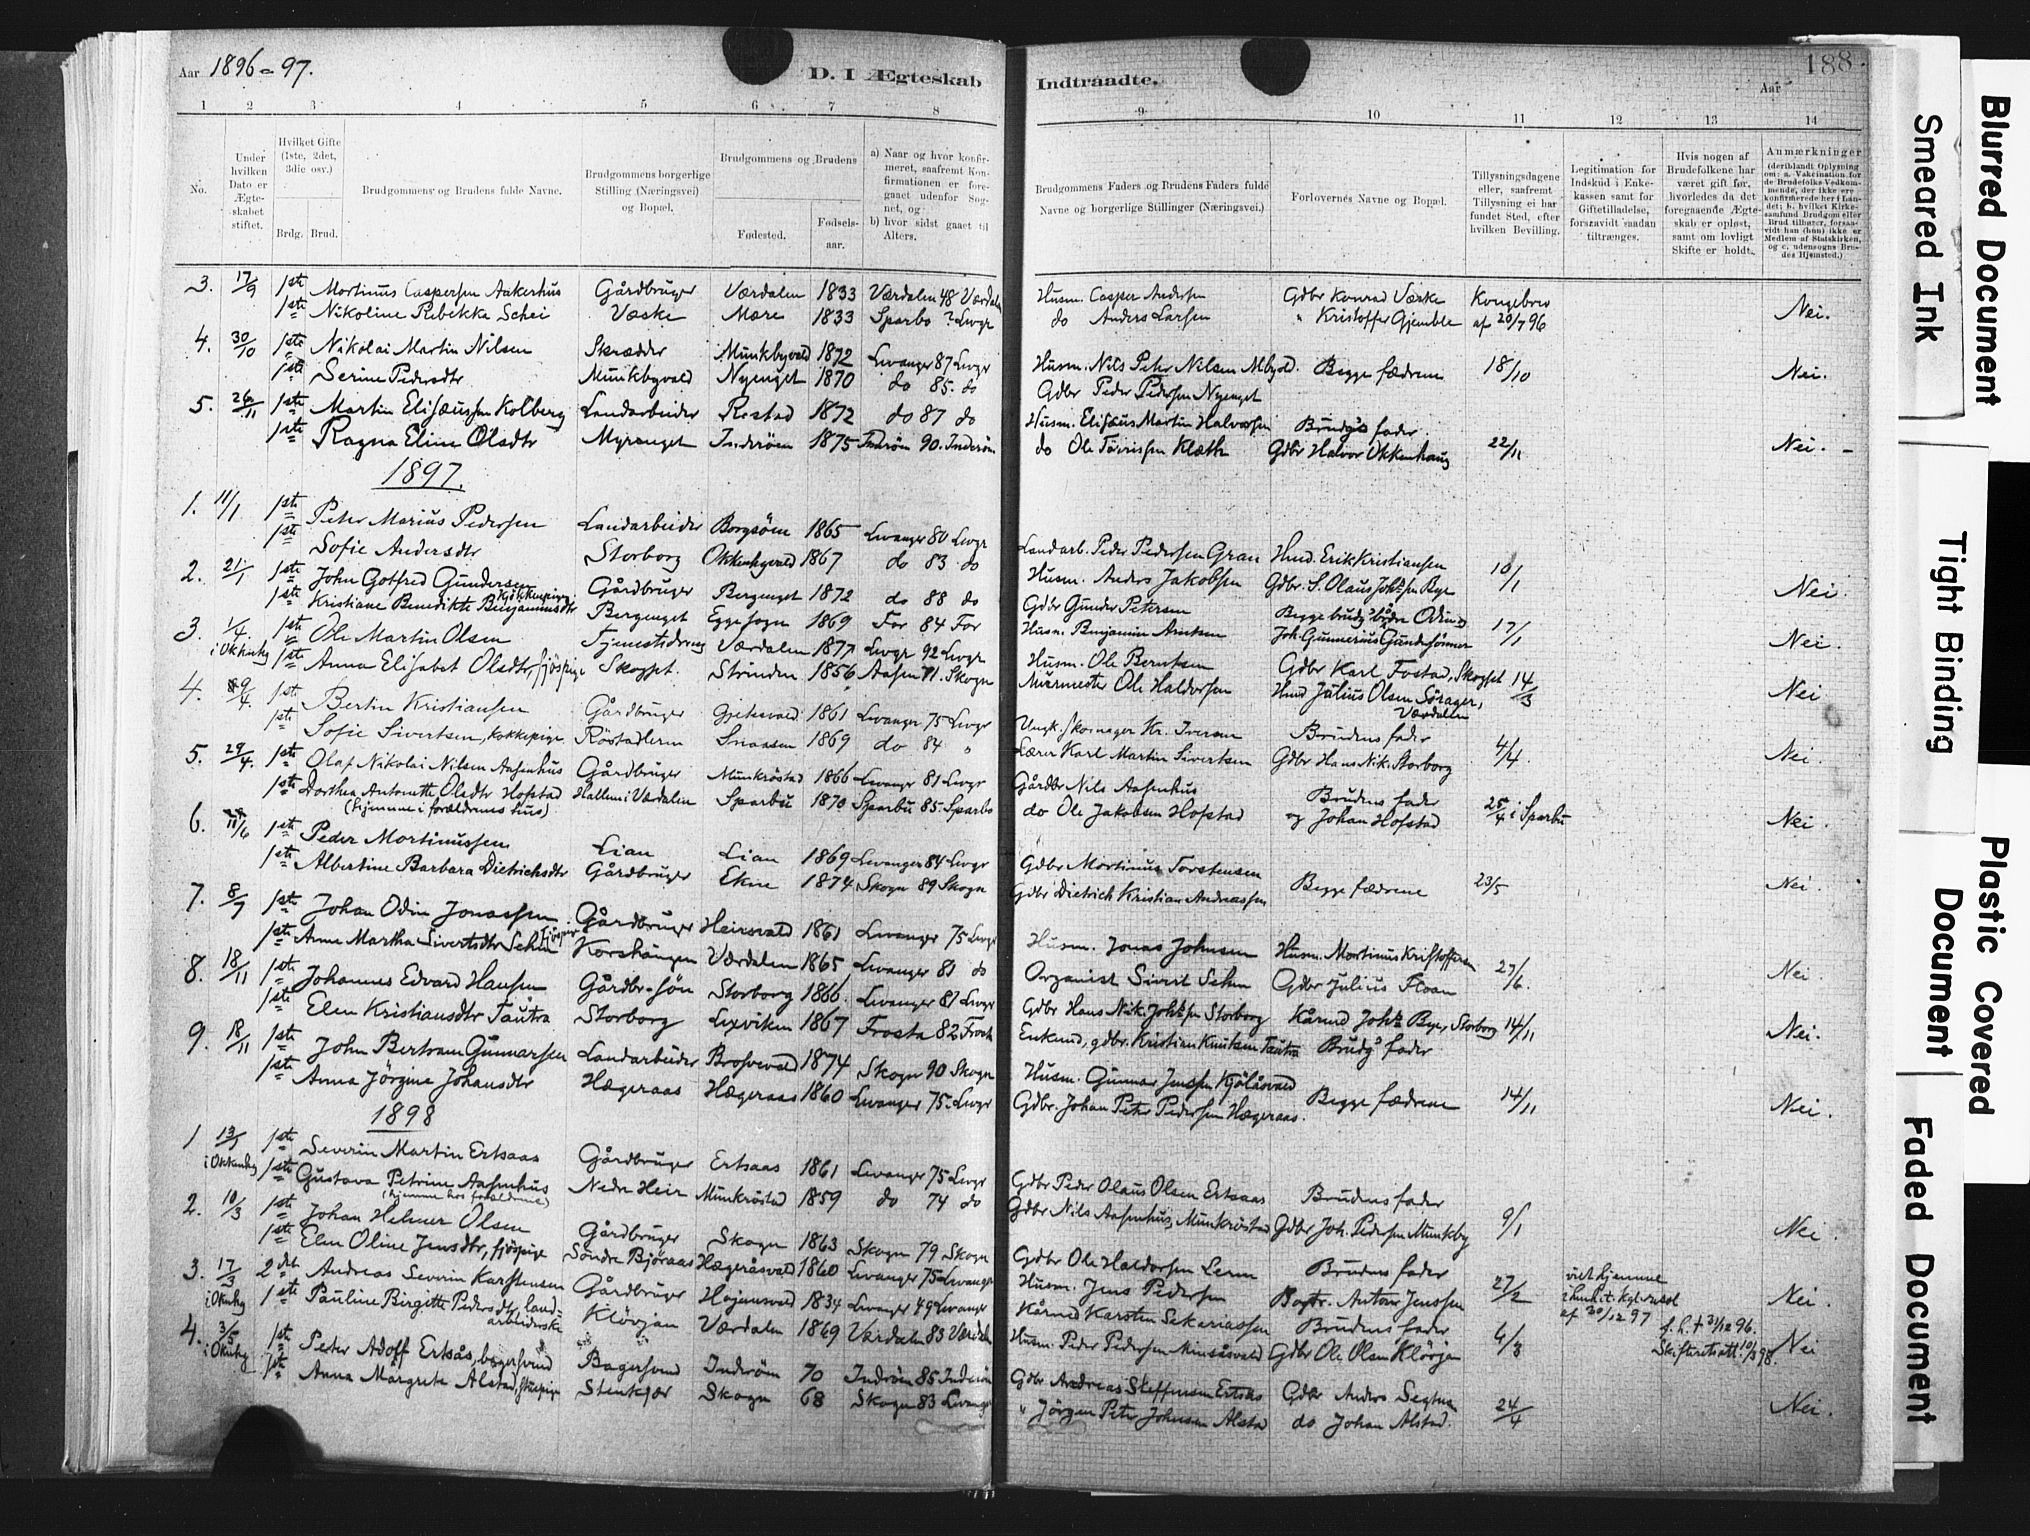 Aar 1896-97.
D. I Ægteskab
Indtraadte.
188.
Aar
1 2 3 4 5 6 7 8
9 10 11 12 13 14
No.
Under hvilken Dato er Ægteskabet stiftet.
Hvilket Gifte (1ste, 2det, 3die osv.)
Brdg. Brud.
Brudgommens og Brudens fulde Navne.
Brudgommens borgerlige Stilling (Næringsvei) og Bopæl.
Brudgommens og Brudens
Fødested. Fødselsaar.
a) Naar og hvor konfirmeret, saafremt Konfirmationen er foregaaet udenfor Sognet, og
b) hvor sidst gaaet til Alters.
Brudgommens Faders og Brudens Faders fulde Navne og borgerlige Stillinger (Næringsvei.)
Forlovernes Navne og Bopæl.
Tillysningsdagene eller, saafremt Tillysning ei har fundet Sted, efter hvilken Bevilling.
Legitimation for Indskud i Enkekassen samt for Giftetilladelse, forsaavidt saadan tiltrænges.
Hvis nogen af Brudefolkene har været gift før, hvorledes da det foregaaende Ægteskab er opløst, samt om lovligt Skifte er holdt.
Anmærkninger (deriblandt Oplysning om: a. Vakcination for de Brudefolks Vedkommende, der ikke ere konfirmerede her i Landet; b. hvilket Kirkesamfund Brudgom eller Brud tilhører, forsaavidt han (hun) ikke er Medlem af Statskirken, og c. udensogns Brudes Hjemsted.)
3. 17/9 1ste Martinus Caspersen Aakerhus Gårdbruger Værdalen 1833 Værdalen 48 Værdalen Husm. Casper Andersen Gdbr Konrad Væske Kongebrev Nei.
1ste Nikoline Rebekka Schei Væske Mære 1833 Sparbo ? Levgr do Anders Larsen " Kristoffer Gjemble af 20/7 96
4. 30/10 1ste Nikolai Martin Nilsen Skrædder Munkbyvald 1872 Levanger 87 Levgr Husm. Nils Peter Nilsen Mbyvld. Begge fædrene 18/10 Nei.
1ste Serine Pedersdtr Munkbyvald Nyenget 1870 do 85. do Gdbr Peder Pedersen Nyenget
5. 26/11 1ste Martin Elisæussen Kolberg Landarbeider Restad 1872 do 87 do Husm. Elisæus Martin Halvorsen Brudg's fader 22/11 Nei.
1ste Ragna Eline Olsdtr Myrenget Inderöen 1875 Indröen 90. Inderöen do Ole Klæth Gdbr Halvor Okkenhaug
1897.
1. 11/1 1ste Peter Marius Pedersen Landarbeider Borgsöen 1865 Levanger 80 Levgr Landarb. Peder Pedersen Gran Hmd. Erik Kristiansen 10/1 Nei.
1ste Sofie Andersdtr Storborg Okkenhgvald 1867 do 83 do Husm. Anders Jakobsen Gdbr. S. Olaus Johsen Bye
2. 21/1 1ste John Gotfred Gundersen Gårdbruger Bergenget 1872 do 88 do Gdbr Gunder Petersen Begge brudg's brödre Odin & 17/1 Nei.
1ste Kristiane Benedikte Benjaminsdtr Kjökkenpige Bergenget Egge sogn 1869 For 84 For Husm. Benjamin Arntsen Joh. Gunnerius Gundersönner
3. 1/4. i Okkenhg 1ste Ole Martin Olsen Tjenestedreng Værdalen 1877 Levgr 92 Levgr Husm. Ole Berntsen Gdbr Karl Fostad, Skogset 14/3 Nei
1ste Anna Elisabet Olsdtr, fjöspige Skogset. Strinden 1856 Aasen 71. Skogn Murmester Ole Haldorsen Hmd Julius Olsen Sörager, Værdalen
4. 9/4 1ste Bertin Kristiansen Gårdbruger Gjetesvald 1861 Levanger 75 Levgr Ungk. Skomager Kr. Iversen Brudens fader 4/4. Nei.
1ste Sofie Sivertsen, kokkepige Röstadlern Snaasen 1869 do 84 " Lærer Karl Martin Sivertsen Gdbr Hans Nik. Storborg
5. 29/4. 1ste Olaf Nikolai Nilsen Aasenhus Gårdbruger Munkröstad 1866 Levanger 81 Levgr Gårdbr Nils Aasenhus Brudens fader 25/4 i Sparbu Nei.
1ste Dorthea Antonette Olsdtr Hofstad (hjemme i forældrenes hus) Hallem i Værdalen Sparbu 1870 Sparbu 85. Sparbo do Ole Jakobsen Hofstad og Johan Hofstad
6. 11/6 1ste Peder Mortinussen Lian Lian 1869 Levanger 84 Levgr Gdbr Mortinus Torstensen Begge fædrene 23/5 Nei.
1ste Albertine Barbara Dietrichsdtr Gårdbruger Ekne 1874 Skogn 89 Skogn Gdbr Dietrich Kristian Andreassen
7. 8/7 1ste Johan Odin Jonassen Gårdbruger Heirsvald 1861 Levanger 75 Levgr Husm. Jonas Johnsen Husm. Mortinus Kristoffersen 27/6. Nei.
1ste Anne Martha Sivertsdtr Sehm fjöspige Korshaugen Værdalen 1865 Levanger 81 do Organist Sivert Sehm Gdbr Julius Floan
8. 18/11 1ste Johannes Edvard Hansen Gårdbr.-sön Storborg 1866. Levanger 81 Levgr Gdbr Hans Nik. Johsen Storborg Kårmd Johs Bye, Storborg 14/11 Nei.
1ste Elen Kristiansdtr Tautra Storborg Lexviken 1867 Frosta 82 Frosta Enkemd, gdbr. Kristian Knutsen Tautra Brudg's fader
9. 18/11 1ste John Bertram Gunnarsen Landarbeider Brosvevald 1874 Skogn 90 Skogn Husm. Gunnar Jenssen Kjölåsvald Begge fædrene 14/11 Nei.
1ste Anna Jörgine Johansdtr Hægeraas Hægeraas 1860 Levanger 75. Levgr Gdbr. Johan Peter Pedersen Hægeraas.
1898
1 13/1 i Okkenhg 1ste Severin Martin Ertsaas Gårdbruger Ertsaas 1861 Levanger 75 Levgr Gdbr Peder Olaus Olsen Ertsaas Brudens fader 9/1 Nei.
1ste Gustava Petrine Aasenhus (hjemme hos forældrene) Nedre Heir Munkröstad 1859 do 74 do Gdbr Nils Aasenhus, Munkröstad Gdbr Joh. Pedersen Munkeby
2. 10/3 1ste Johan Helmer Olsen Gårdbruger Skogn 1863 Skogn 79 Skogn Gdbr Ole Haldorsen Leren Brudens fader 27/2 Nei.
1ste Elen Oline Jensdtr, fjöspige Söndre Björaas Hægeråsvald 1860 Levanger 75 Levanger Husm. Jens Pedersen Bagtr. Anton Jenssen
3. 17/3 i Okenhg 2det Andreas Severin Karstensen Gårdbruger Hojemsvald 1834 Levanger 49 Levanger Kårmd Karsten Sekariassen Brudens fader 6/3 viet hjemme i huset iht. kgl. resol af 30/12 97 f. h. † 31/12 96. Skifteretsatt. 10/3 98. Nei
1ste Pauline Birgitte Pedersdtr, landarbeiderske Klörjan Værdalen 1869 Værdalen 83 Værdalen Husm. Peder Pedersen Minsåsvald Gdbr Ole Olsen Klörjan
4. 3/5 i Okenhg 1ste Peter Adolf Ertsås, bagersvend Bagersvend Indröen 70 Indröen 85 Inderöen Gdbr Andreas Steffensen Ertsås Gdbr Anders Segtnan 24/4 Nei.
1ste Anna Margrete Alstad, Stuepige Stenkjær Skogn 68 Skogn 83 Levanger " Jörgen Peter Johnsen Alstad do Johan Alstad.
Blurred Document
Smeared Ink
Tight Binding
Plastic Covered Document
Faded Document